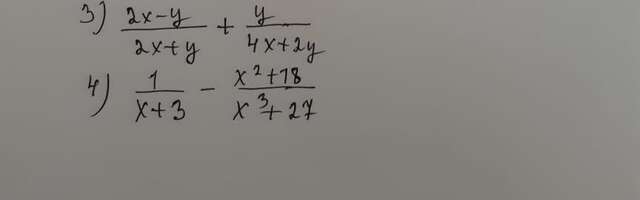 3) (2x-y)/(2x+y) + y/(4x+2y)
4) 1/(x+3) - (x²+18)/(x³+27)